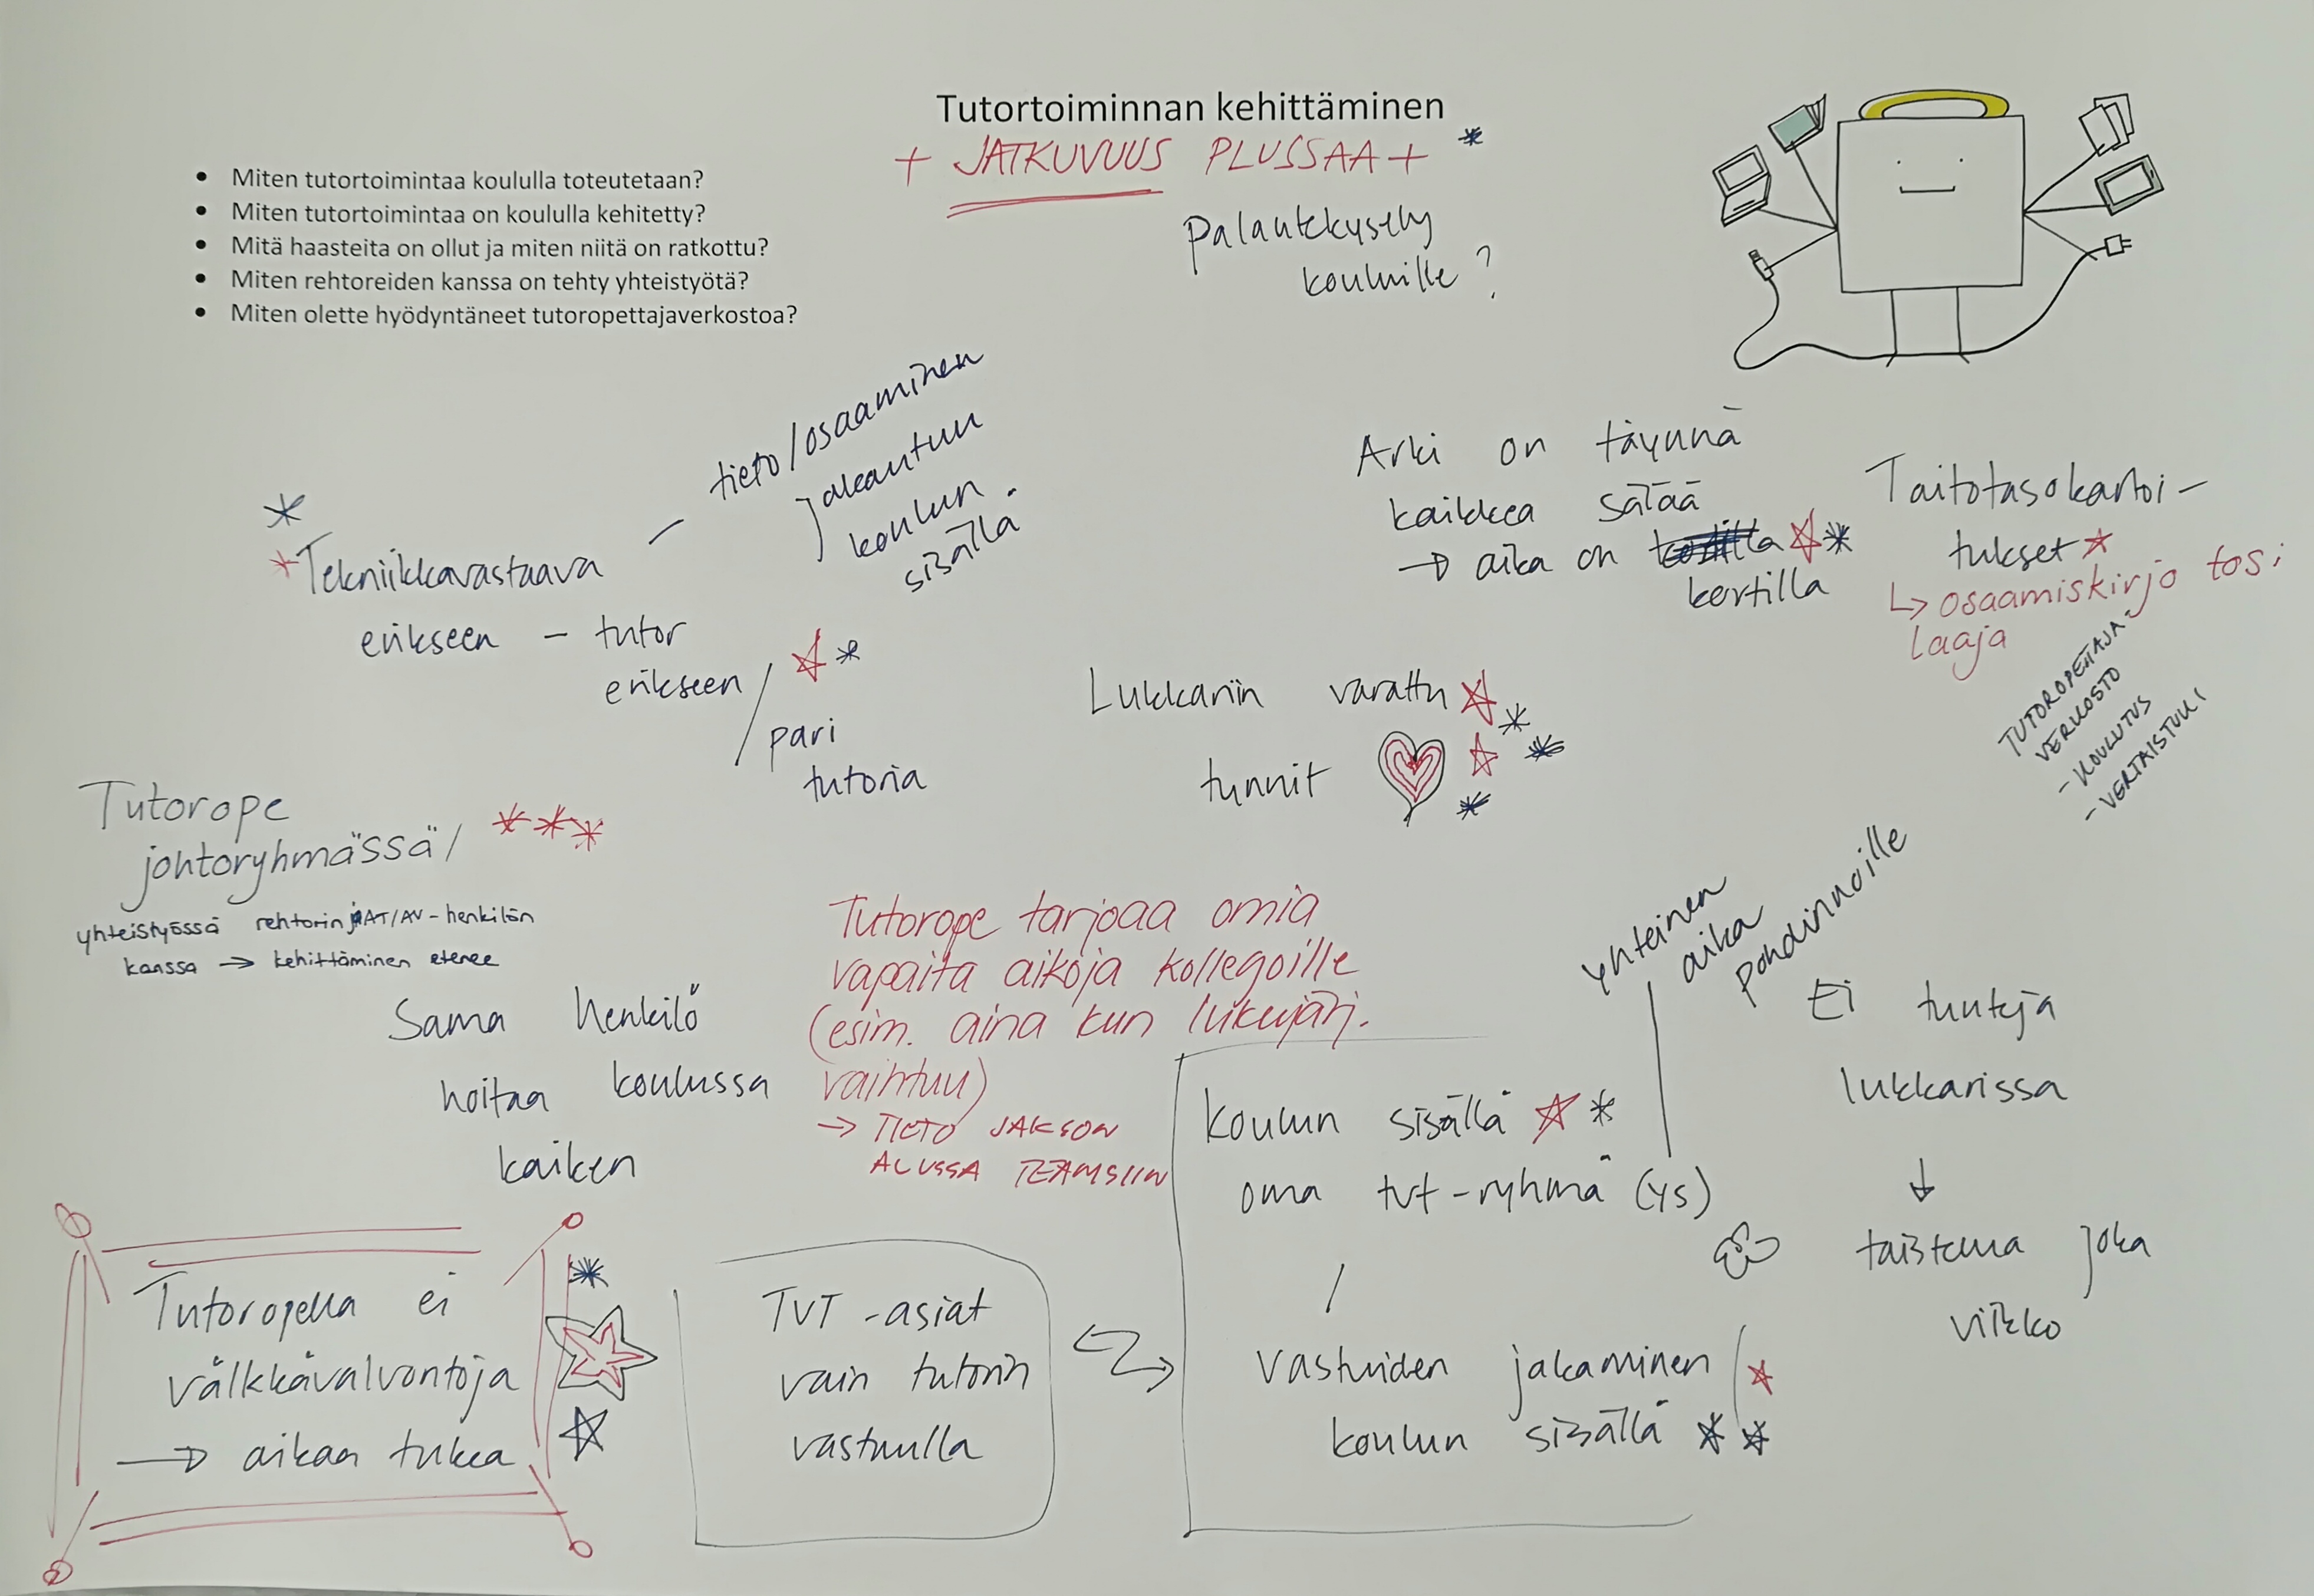 Tutortoiminnan kehittäminen
+ JATKUVUUS PLUSSAA +
• Miten tutortoimintaa koululla toteutetaan?
• Miten tutortoimintaa on koululla kehitetty?
• Mitä haasteita on ollut ja miten niitä on ratkottu?
• Miten rehtoreiden kanssa on tehty yhteistyötä?
• Miten olette hyödyntäneet tutoropettajaverkostoa?
Palautekysely
kouluille?
Tekniikkavastaava
erikseen - tutor
erikseen /
pari
tutoria
- tieto/osaaminen
jakautuu
koulun
sisällä.
Arki on täynnä
kaikkea sälää
→ aika on
kortilla
Taitotasokartoi-
tukset
↳ osaamiskirjo tosi
laaja
TUTOROPETTAJA-
VERKOSTO
- KOULUTUS
- VERTAISTUKI
Lukkariin varattu
tunnit
Tutorope
johtoryhmässä/
yhteistyössä rehtorin, AT/AV-henkilön
kanssa → kehittäminen etenee
Sama henkilö
hoitaa koulussa
kaiken
Tutorope tarjoaa omia
vapaita aikoja kollegoille
(esim. aina kun lukujärj.
vaihtuu)
→ TIETO JAKSON
ALUSSA TEAMSIIN
yhteinen
aika
pohdinnoille
Koulun sisällä
oma tvt-ryhmä (ys)
/
vastuiden jakaminen
koulun sisällä
Ei tunteja
lukkarissa
↓
taistelua joka
viikko
Tutoropella ei
välkkävalvontoja
→ aikaa tukea
TVT-asiat
vain tutorin
vastuulla